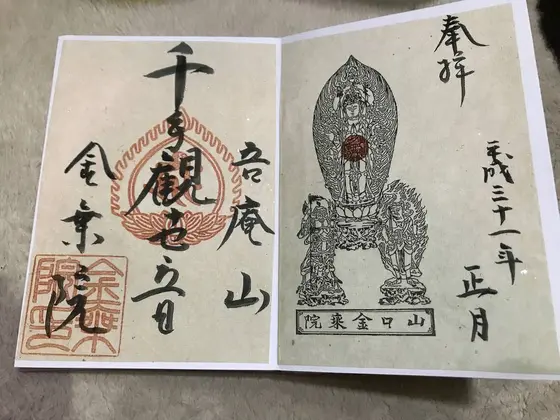 奉拝
平成三十一年
正月
山口金乘院
吾庵山
千手観世音
金乗院
金乘院印